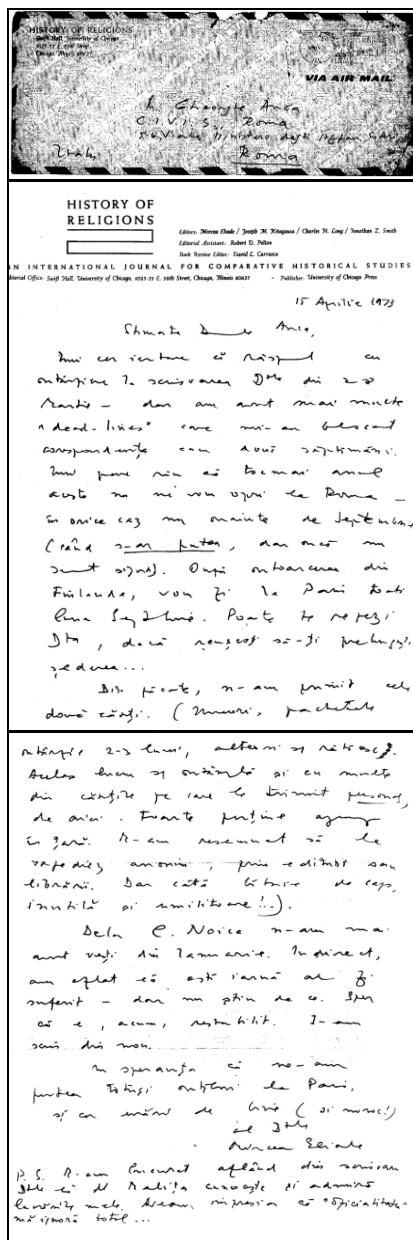 HISTORY OF RELIGIONS
Swift Hall, University of Chicago
1025-35 E. 58th Street
Chicago, Illinois 60637
VIA AIR MAIL
Gheorghe Anca
C.I.V.I.S. Roma
Italia Roma
HISTORY OF
RELIGIONS
Editors: Mircea Eliade / Joseph M. Kitagawa / Charles H. Long / Jonathan Z. Smith
Editorial Assistant: Robert D. Pelton
Book Review Editor: David L. Carrasco
N INTERNATIONAL JOURNAL FOR COMPARATIVE HISTORICAL STUDIES
ditorial Office: Swift Hall, University of Chicago, 1025-35 E. 58th Street, Chicago, Illinois 60637 • Publisher: University of Chicago Press
15 Aprilie 1973
Stimate Anca,
Îmi cer iertare că răspund cu
întârziere la scrisoarea Dtale din 28
Martie – dar am avut mai multe
"dead-lines" care mi-au blocat
corespondența cam două săptămâni.
Îmi pare rău că tocmai anul
acesta nu ne vom opri la Roma –
în orice caz nu înainte de Septembrie
(când s-ar putea, dar încă nu
sunt sigur). După întoarcerea din
Finlanda, vom fi la Paris toată
luna Septembrie. Poate te repezi
Dta, dacă reușești să-ți prelungești
șederea...
Din păcate, n-am primit cele
două cărți. (Uneori, pachetele
întârzie 2-3 luni, alteori se rătăcesc).
Același lucru se întâmplă și cu multe
din cărțile pe care le trimit personal,
de aici. Foarte puține ajung
în țară. M-am resemnat să le
expediez anonim, prin edituri sau
librării. Dar câtă bătaie de cap,
inutilă și umilitoare!..).
Dela C. Noica n-am mai
avut vești din Ianuarie. Indirect,
am aflat că astă iarnă ar fi
suferit – dar nu știu de ce. Sper
că e, acum, restabilit. I-am
scris din nou.
În speranța că ne-am
putea totuși întâlni la Paris,
și cu urări de bine (și noroc!)
al Dtale
Mircea Eliade
P.S. M-am bucurat aflând din scrisoarea
Dtale că Dl Malița cunoaște și admiră
lucrările mele. Aveam impresia că "oficialitatea"
mă ignoră total...